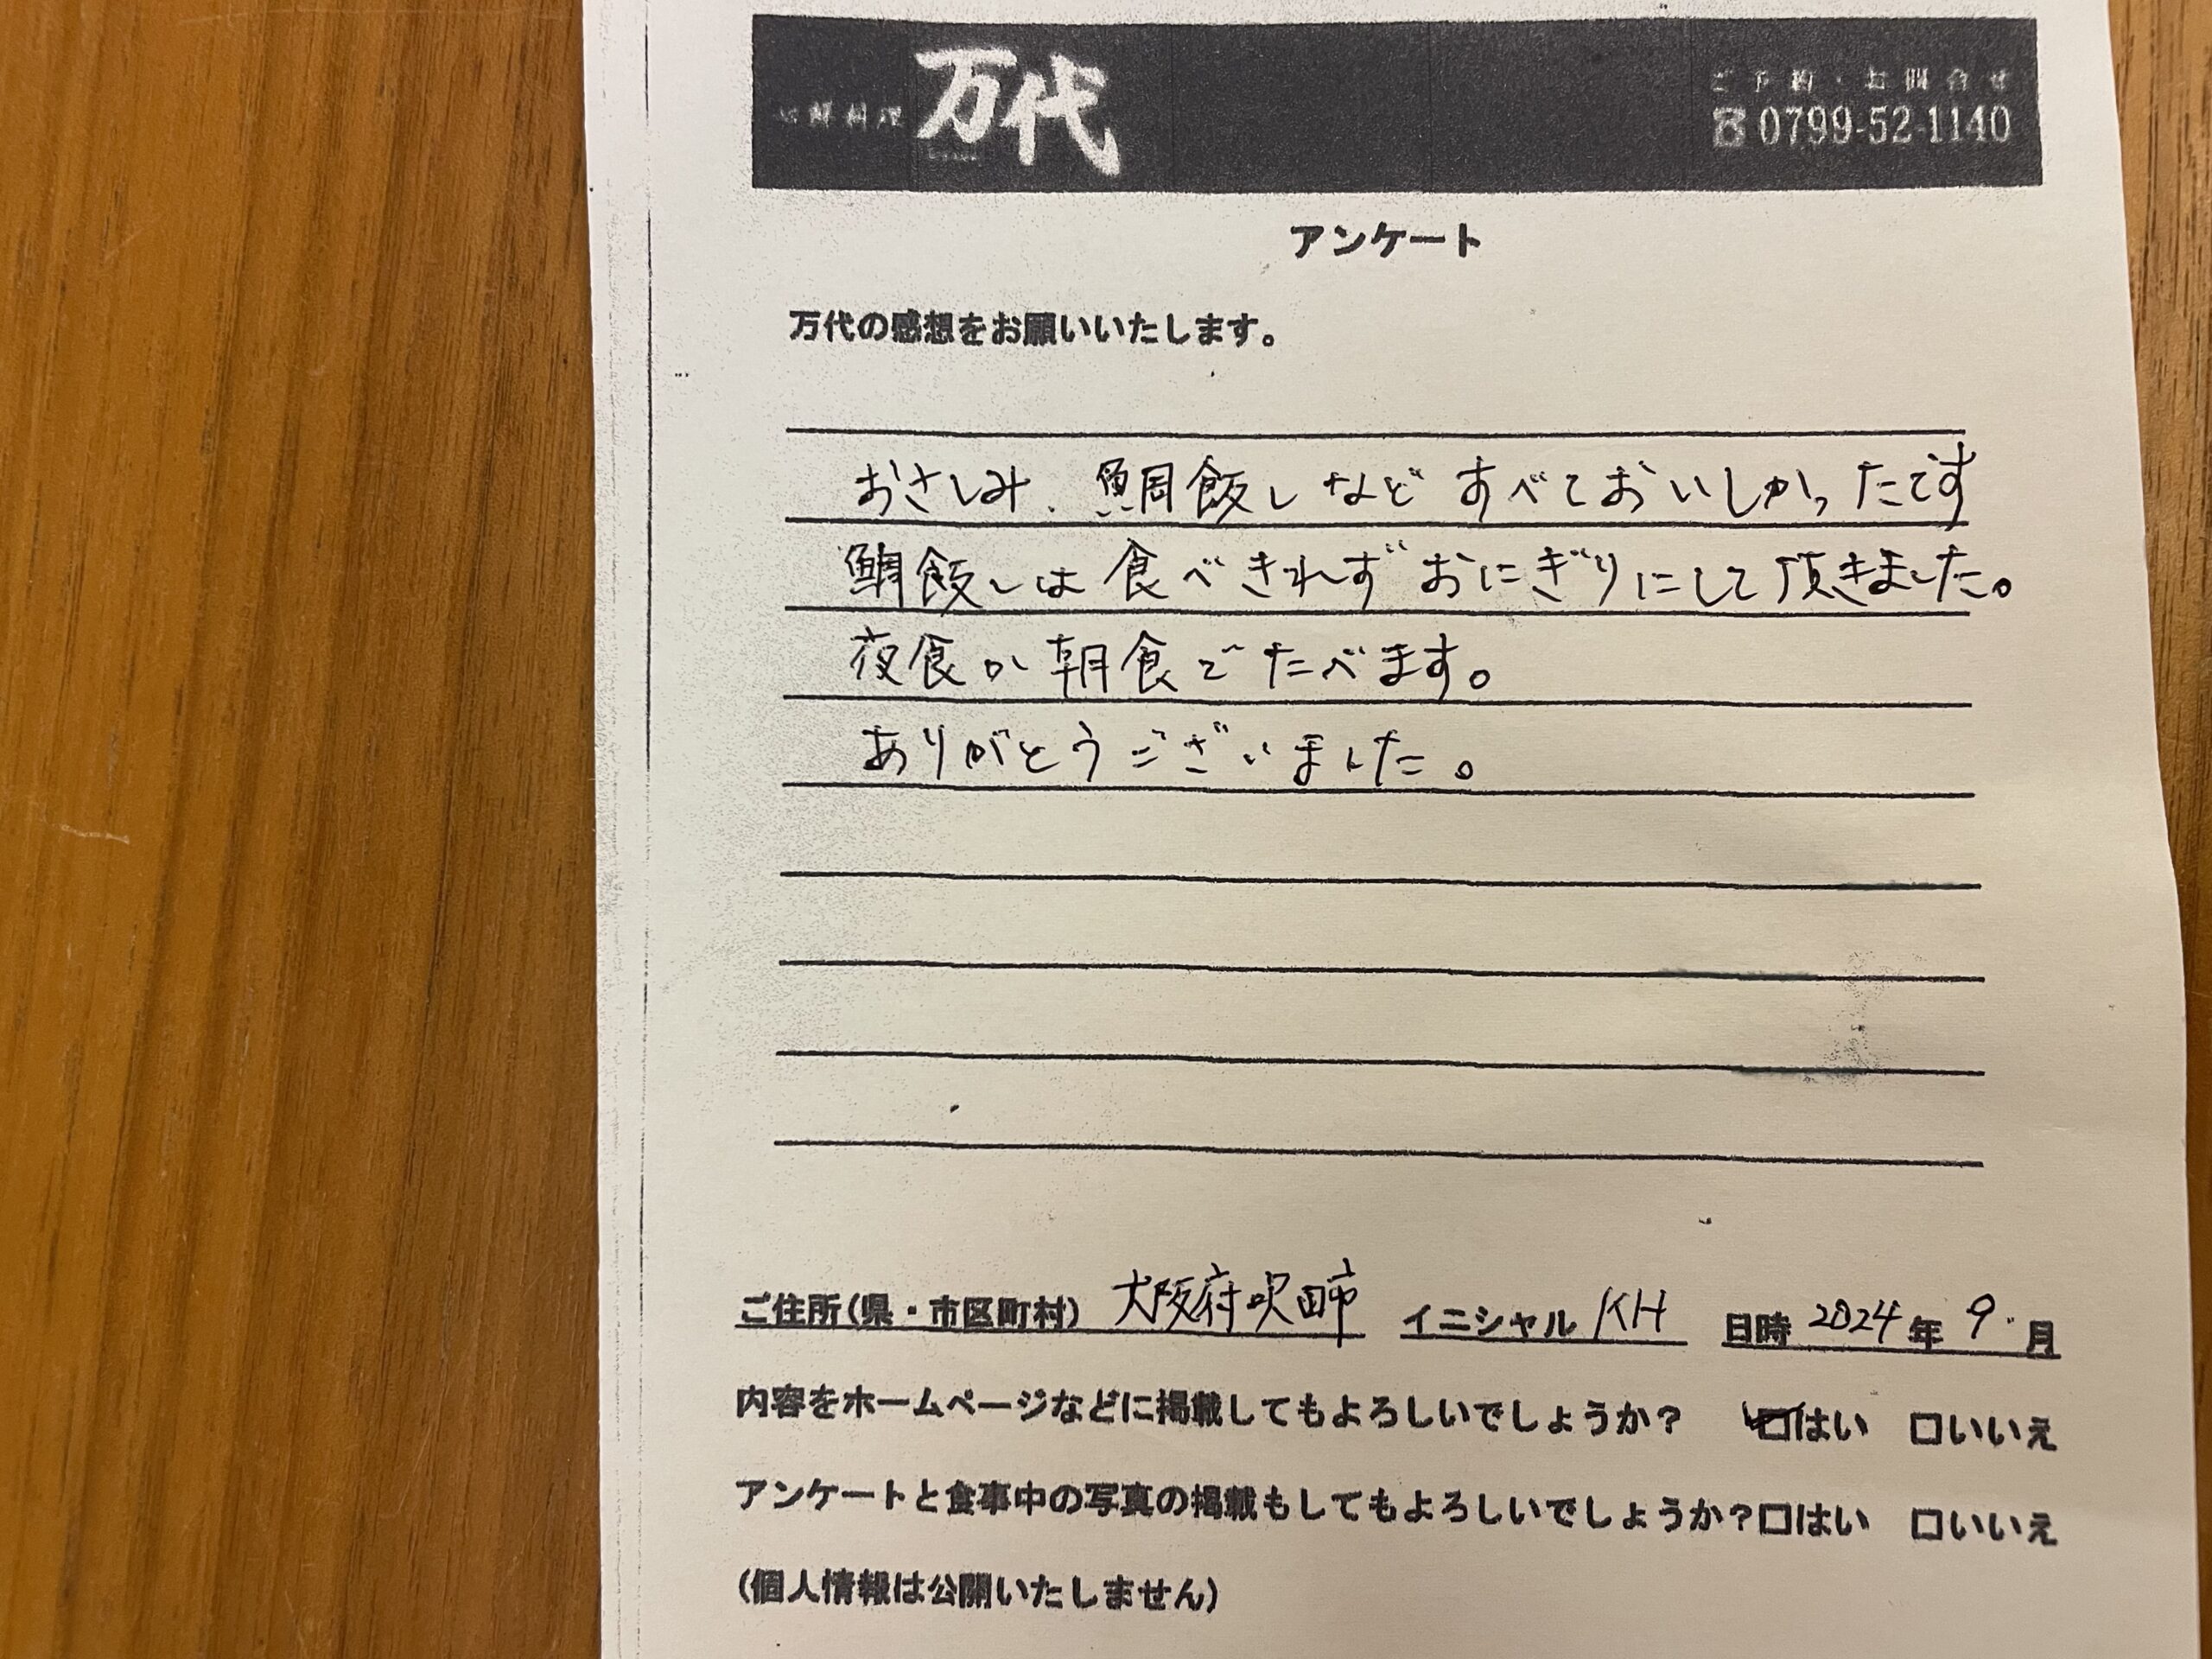 心鮮料理 万代
ご予約・お問合せ
☎0799-52-1140
アンケート
万代の感想をお願いいたします。
おさしみ、鯛飯しなどすべておいしかったです
鯛飯しは食べきれずおにぎりにして頂きました。
夜食か朝食でたべます。
ありがとうございました。
ご住所(県・市区町村) 大阪府吹田市 イニシャル KH 日時 2024年 9月
内容をホームページなどに掲載してもよろしいでしょうか? ☑はい □いいえ
アンケートと食事中の写真の掲載もしてもよろしいでしょうか?□はい □いいえ
(個人情報は公開いたしません)